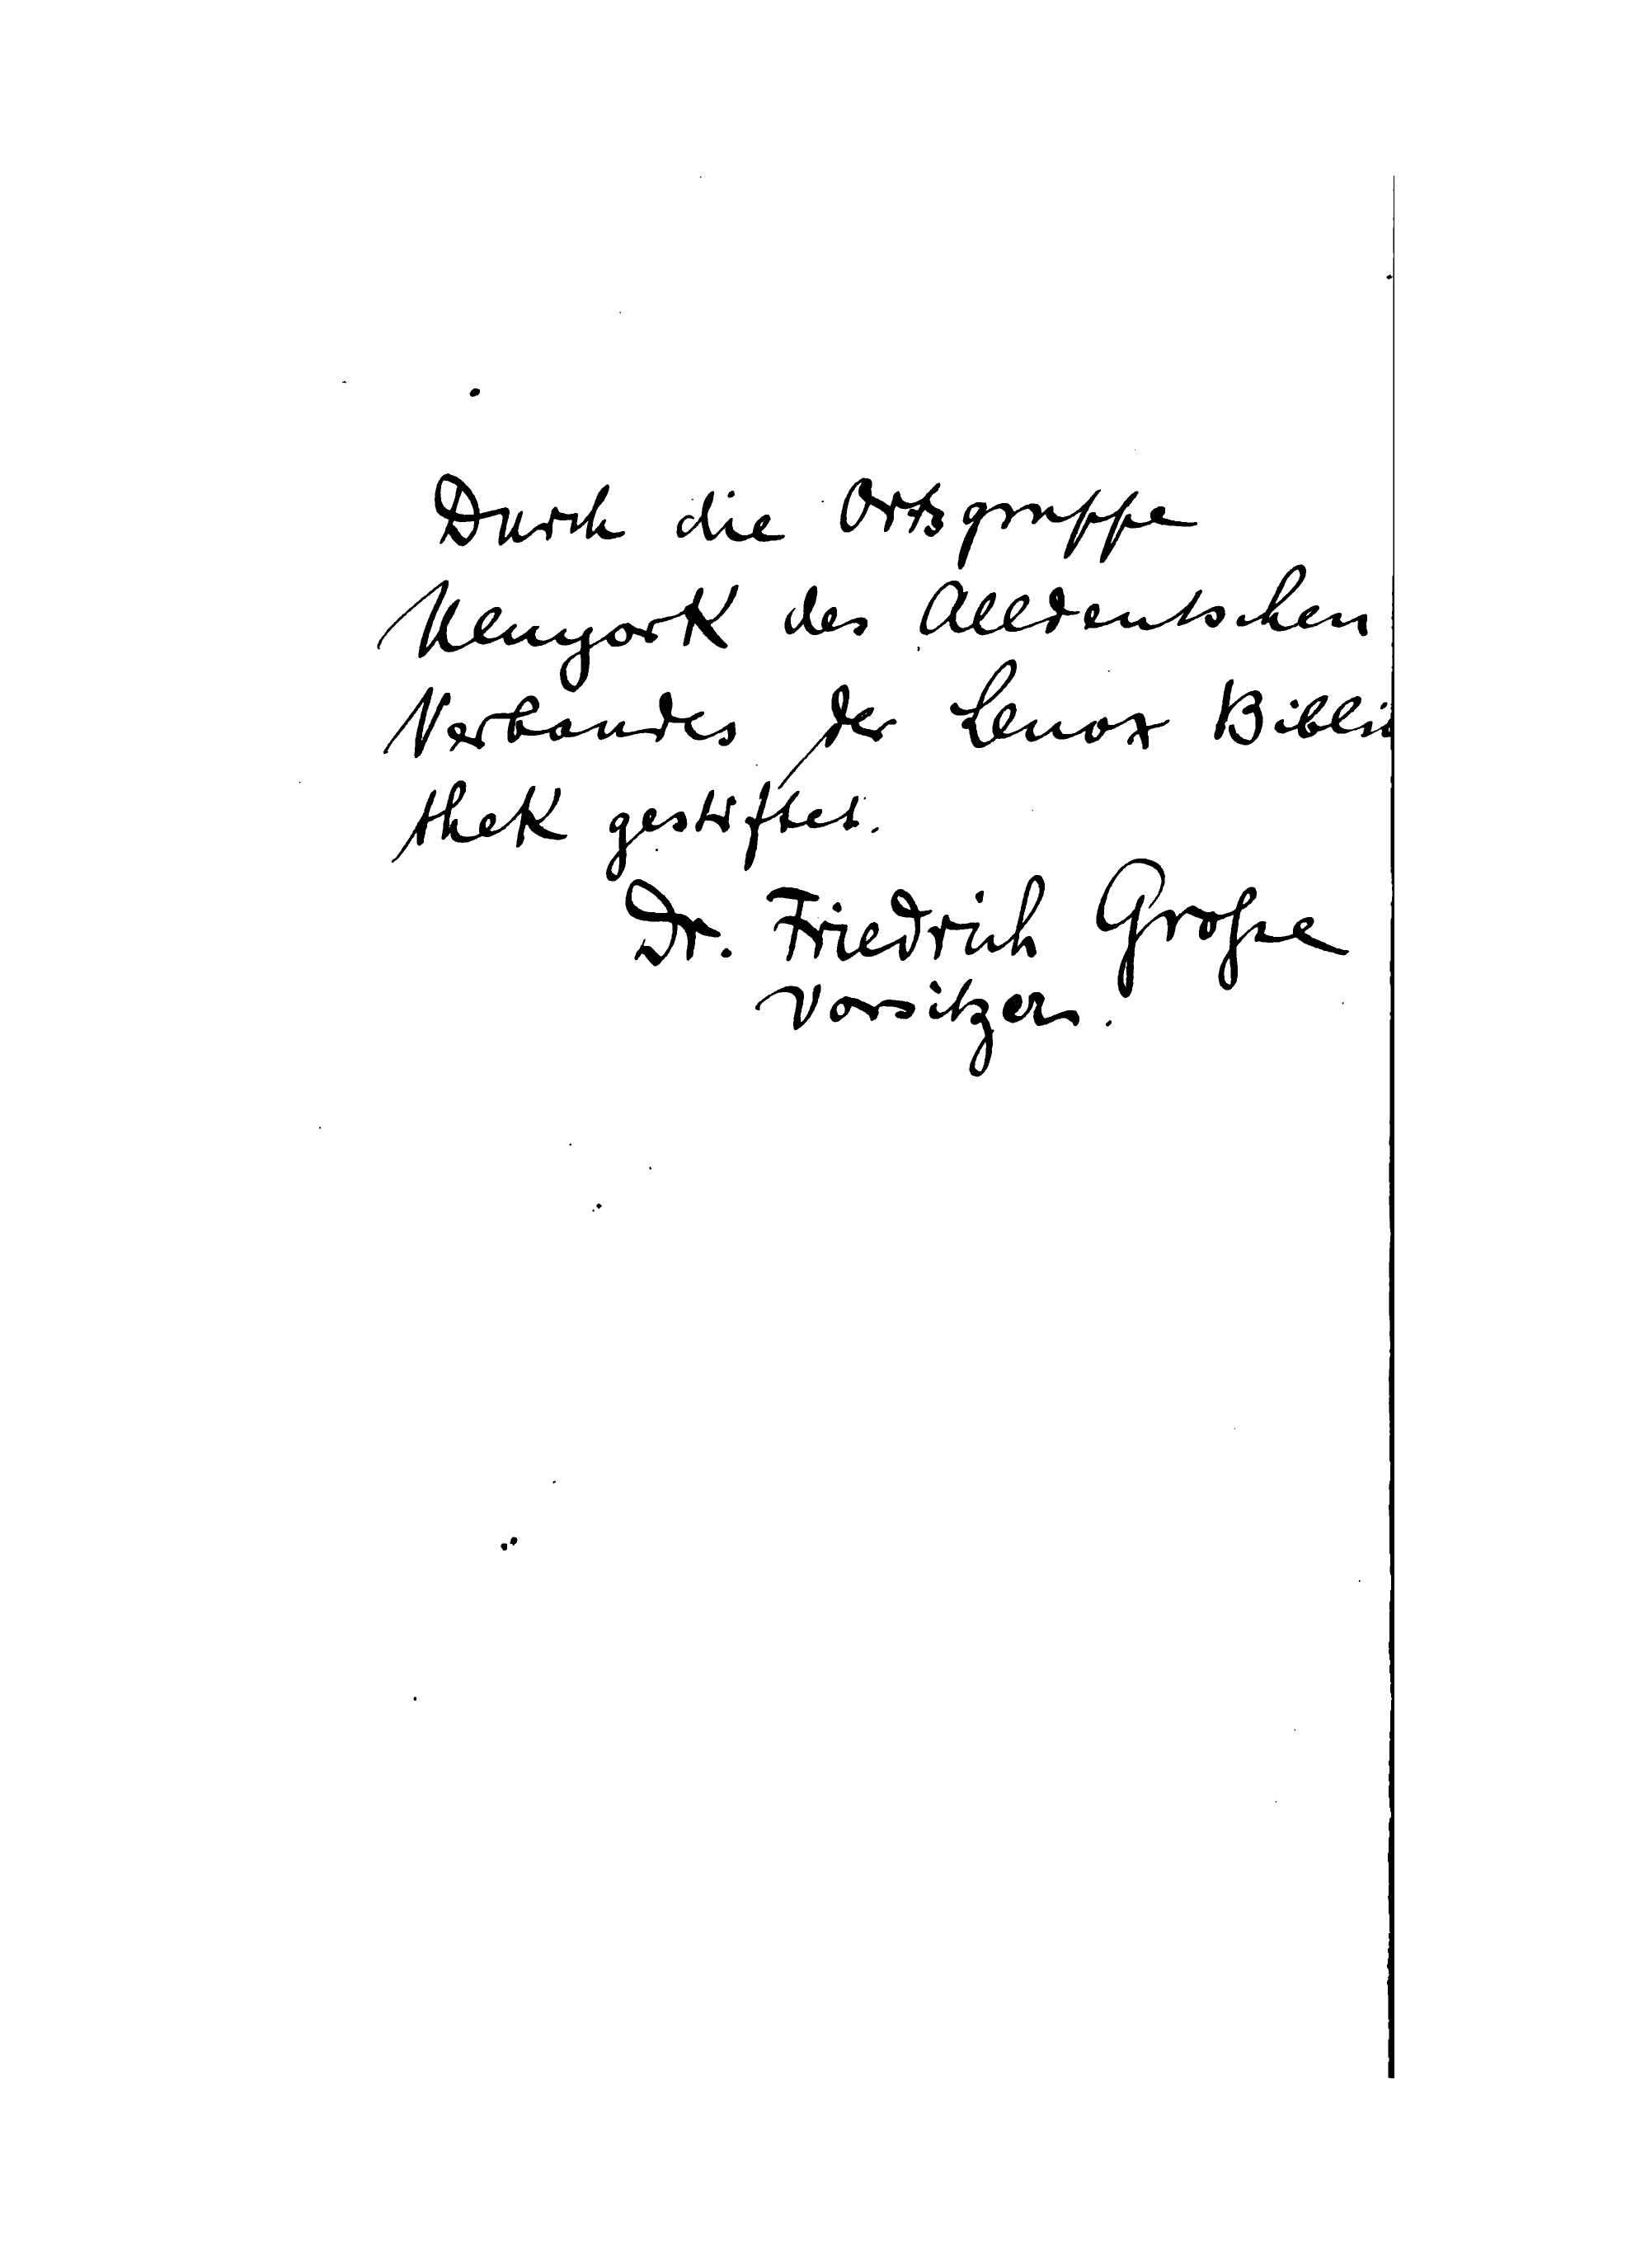 Durch die Ortsgruppe
Neuyork des Alldeutschen
Verbandes der Lenox Biblio
thek gestiftet.
Dr. Friedrich Große
Vorsitzer.